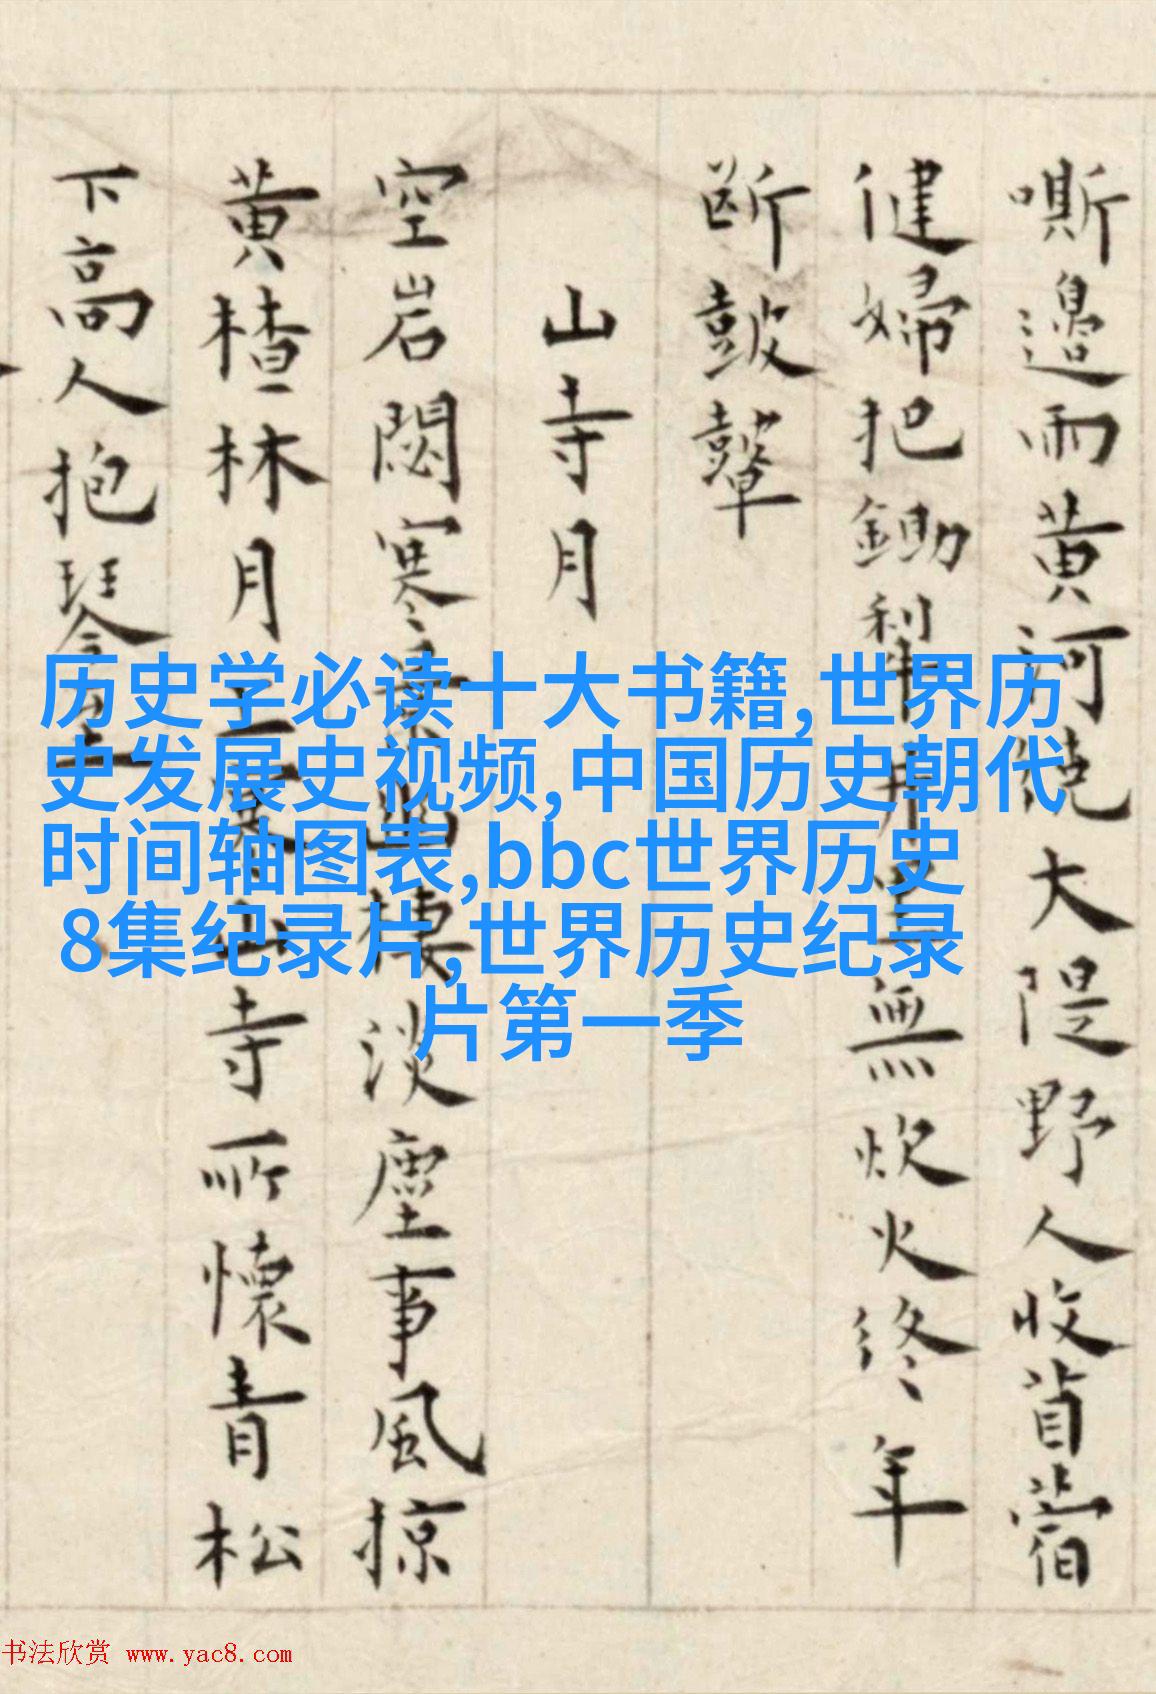 嘶邊雨黄河繞大隄野人收苜蓿
健婦把鋤犁井無炊火終年
斷皷鼙
山寺月
空岩閟寒棲淡塵事風掠
黄楂林月上山寺所懷青松
下高人抱琴
历史学必读十大书籍,世界历
史发展史视频,中国历史朝代
时间轴图表,bbc世界历史
8集纪录片,世界历史纪录
片第一季
书法欣赏 www.yac8.com